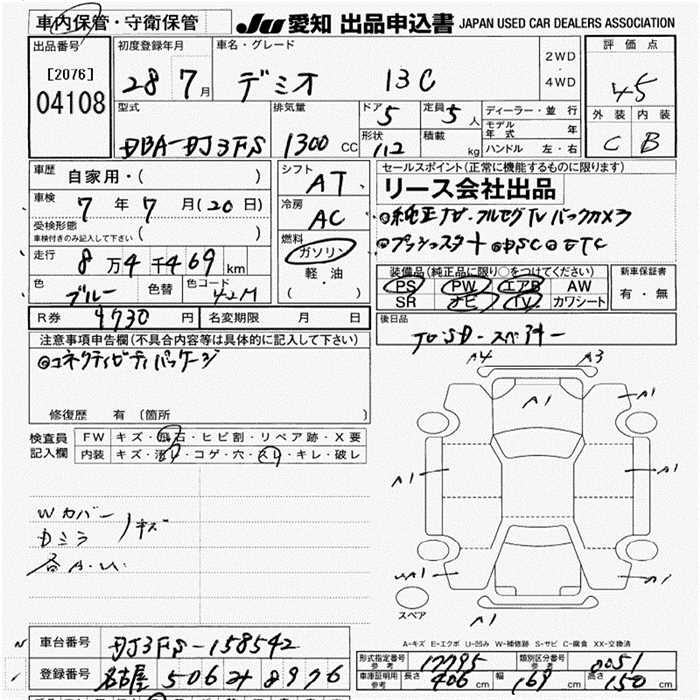 車内保管・守衛保管
JU 愛知 出品申込書 JAPAN USED CAR DEALERS ASSOCIATION
出品番号 [2076] 04108
初度登録年月 28 7月
車名・グレード デミオ 13C
2WD・4WD
評価点 45
外装 内装 C B
型式 DBA-DJ3FS
排気量 1300 CC
ドア 5
定員 5人
形状 112
積載 kg
ディーラー・並行
モデル年式 年
ハンドル 左・右
車歴 自家用・( )
車検 7年7月(20日)
受検形態 車検付きのみ記入して下さい ( )
走行 8万4千469km
色 ブルー 色替 色コード 42M
シフト AT
冷房 AC
燃料 ガソリン・軽・油 ( )
セールスポイント(正常に機能するものに限ります)
リース会社出品
◎純正TV・フルセグTVバックカメラ
◎プッシュスタート◎DSC◎ETC
装備品(純正品に限り○をつけてください)
PS PW エアB AW
SR ナビ TV カワシート
新車保証書 有・無
R券 9730円
名変期限 月 日
後日品
注意事項申告欄(不具合内容等は具体的に記入して下さい)
◎コネクティビティパッケージ
修復歴 有 (箇所
検査員記入欄
FW キズ・飛石・ヒビ割・リペア跡・X要
内装 キズ・汚レ・コゲ・穴・スレ・キレ・破レ
Wカバー
Dミラ キズ
各A.U.
A4 A3
A1 A1
A1 A1
A1
A1
スペア
A-キズ E-エクボ U-凹み W-補修跡 S-サビ C-腐食 XX-交換済
車台番号 DJ3FS-158542
登録番号 名古屋 506 8976
形式指定番号 参考 17795
類別区分番号 参考 0051
車庫証明用 参考 長さ 406cm 幅 169cm 高さ 150cm